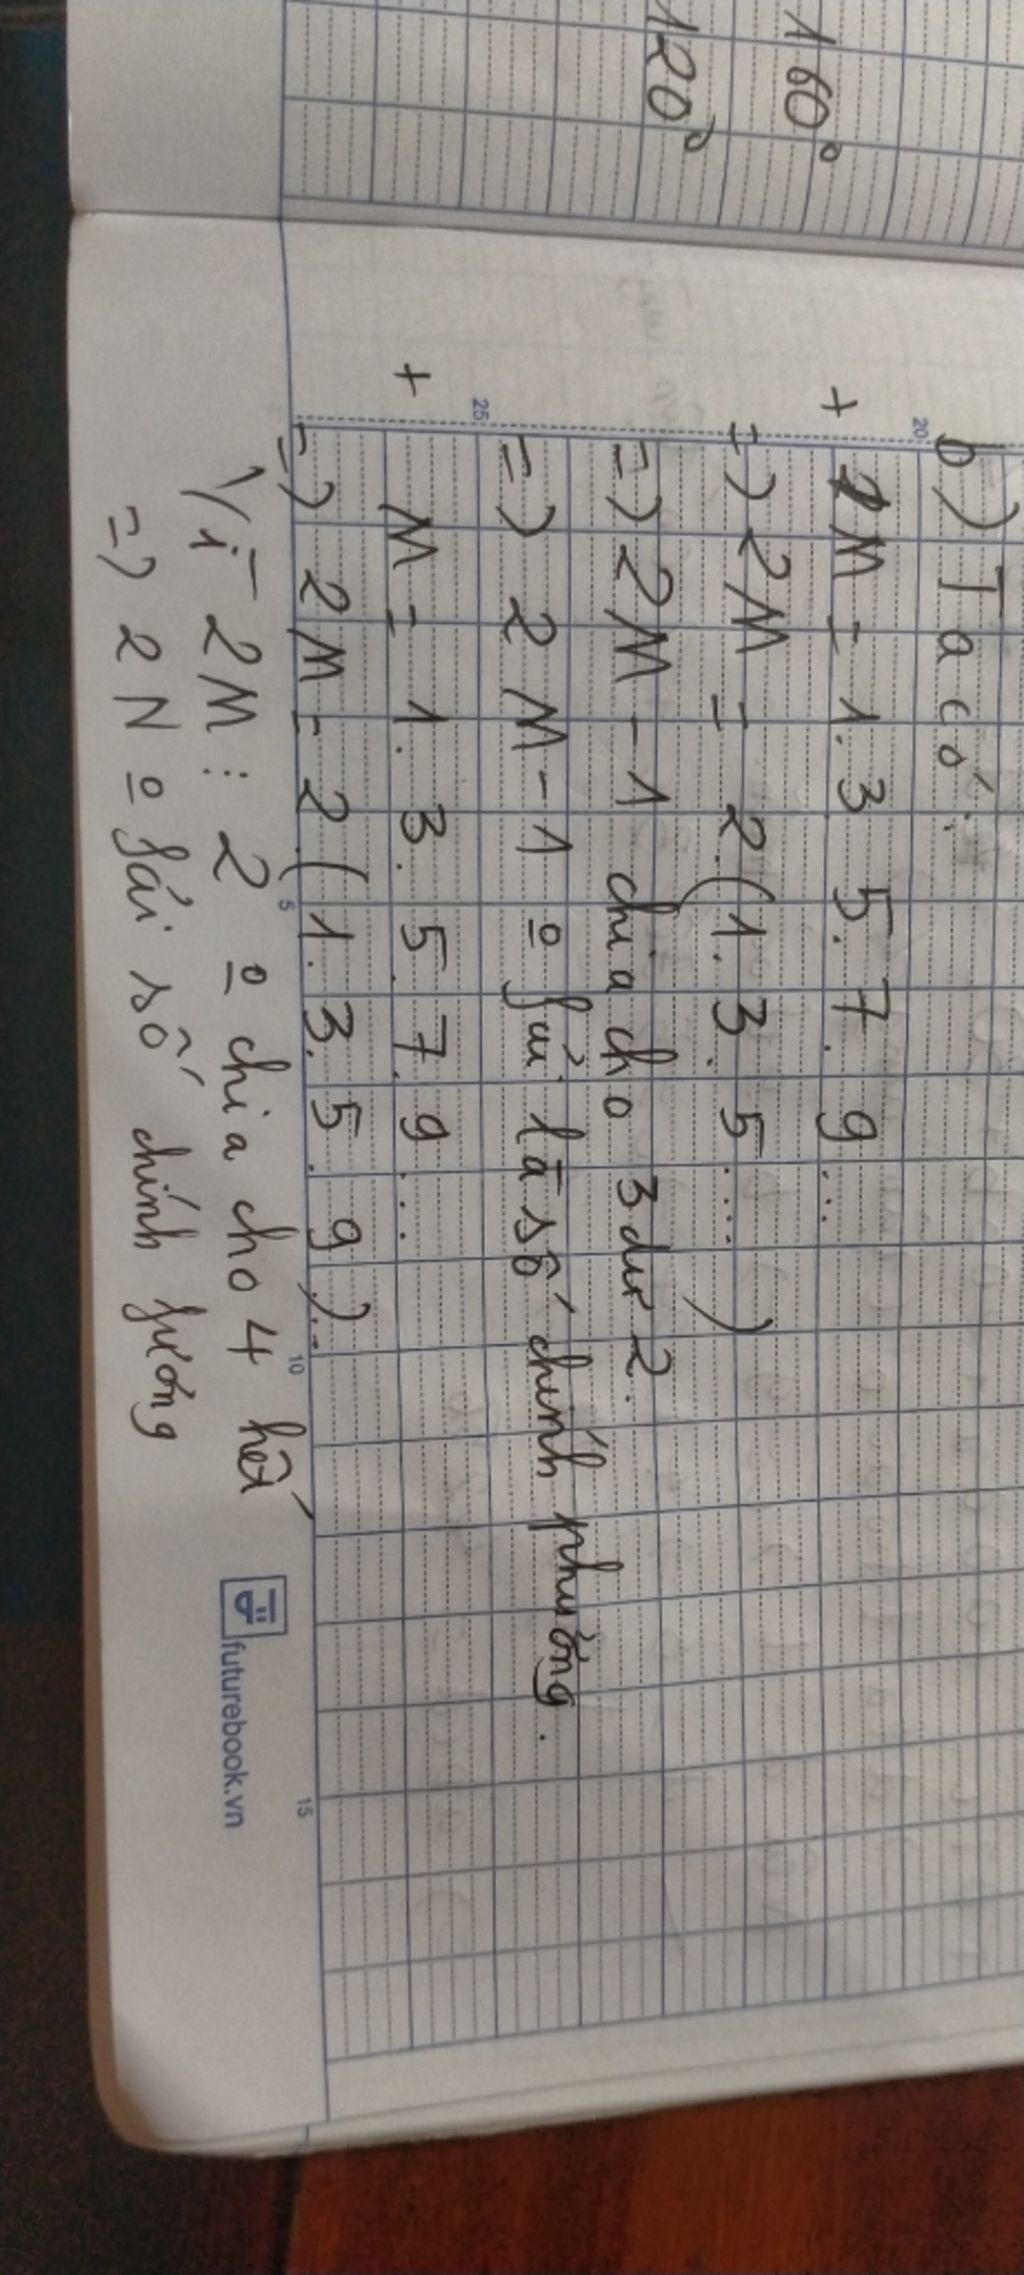 160°
120°
20
b) Ta có:
+ M = 1. 3 5. 7. 9 ...
=) 2M = 2.(1. 3. 5 .... )
=) 2M - 1 chia cho 3 dư 2.
=) 2 M - 1 o fải là số chính phương.
25
+ M = 1. 3. 5. 7. 9 ...
=) 2M = 2.(1. 3. 5. 9 )...
5
10
15
Vì 2M ⋮ 2 o chia cho 4 hết
=) 2 N o fải số chính fương
futurebook.vn